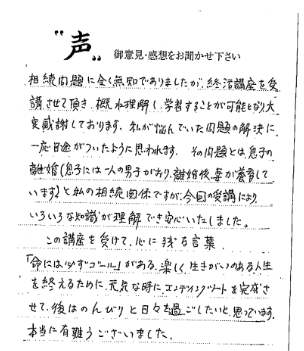 "声" 御意見・感想をお聞かせ下さい
相続問題に全く無知でありましたが、終活講座を受
講させて頂き、概ね理解し、学習することが可能となり大
変感謝しております。私が悩んでいた問題の解決に
一応目途がついたように思われます。その問題とは息子の
離婚(息子には一人の男子があり、離婚後妻が養育して
います)と私の相続関係ですが、今回の受講により
いろいろな知識が理解でき安心いたしました。
この講座を受けて、心に残る言葉
「命には必ずゴール」がある。楽しく、生きがいのある人生
を終えるために、元気な時にエンディングノートを完成さ
せて、後はのんびりと日々を過ごしたいと思っています。
本当に有難うございました。